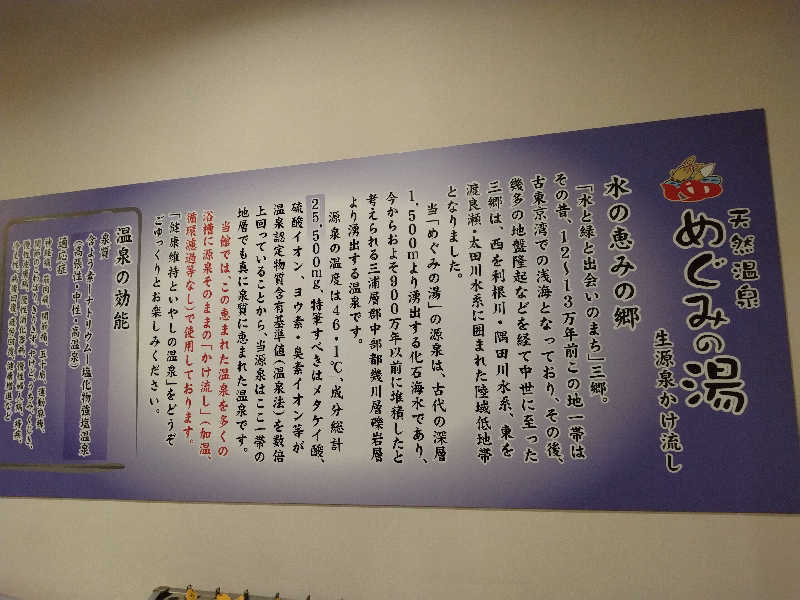 天然温泉
めぐみの湯
生源泉かけ流し
水の恵みの郷
「水と緑と出会いのまち」三郷。
その昔、12〜13万年前この地一帯は
古東京湾での浅海となっており、その後、
幾多の地盤隆起などを経て中世に至った
三郷は、西を利根川・隅田川水系、東を
渡良瀬・太田川水系に囲まれた陸域低地帯
となりました。
当「めぐみの湯」の源泉は、古代の深層
1,500mより湧出する化石海水であり、
今からおよそ900万年以前に堆積したと
考えられる三浦層郡中部都幾川層礫岩層
より湧出する温泉です。
源泉の温度は46・1℃、成分総計
25,500mg、特筆すべきはメタケイ酸、
硫酸イオン、ヨウ素・臭素イオン等が
温泉認定物質含有基準値(温泉法)を数倍
上回っていることから、当源泉はここ一帯の
地層でも真に泉質に恵まれた温泉です。
当館では、この恵まれた温泉を多くの
浴槽に源泉そのままの「かけ流し」(加温、
循環濾過等なし)で使用しております。
「健康維持といやしの温泉」をどうぞ
ごゆっくりとお楽しみください。
温泉の効能
泉質
含よう素ーナトリウムー塩化物強塩温泉
(高張性・中性・高温泉)
適応症
神経痛、筋肉痛、関節痛、五十肩、運動麻痺、